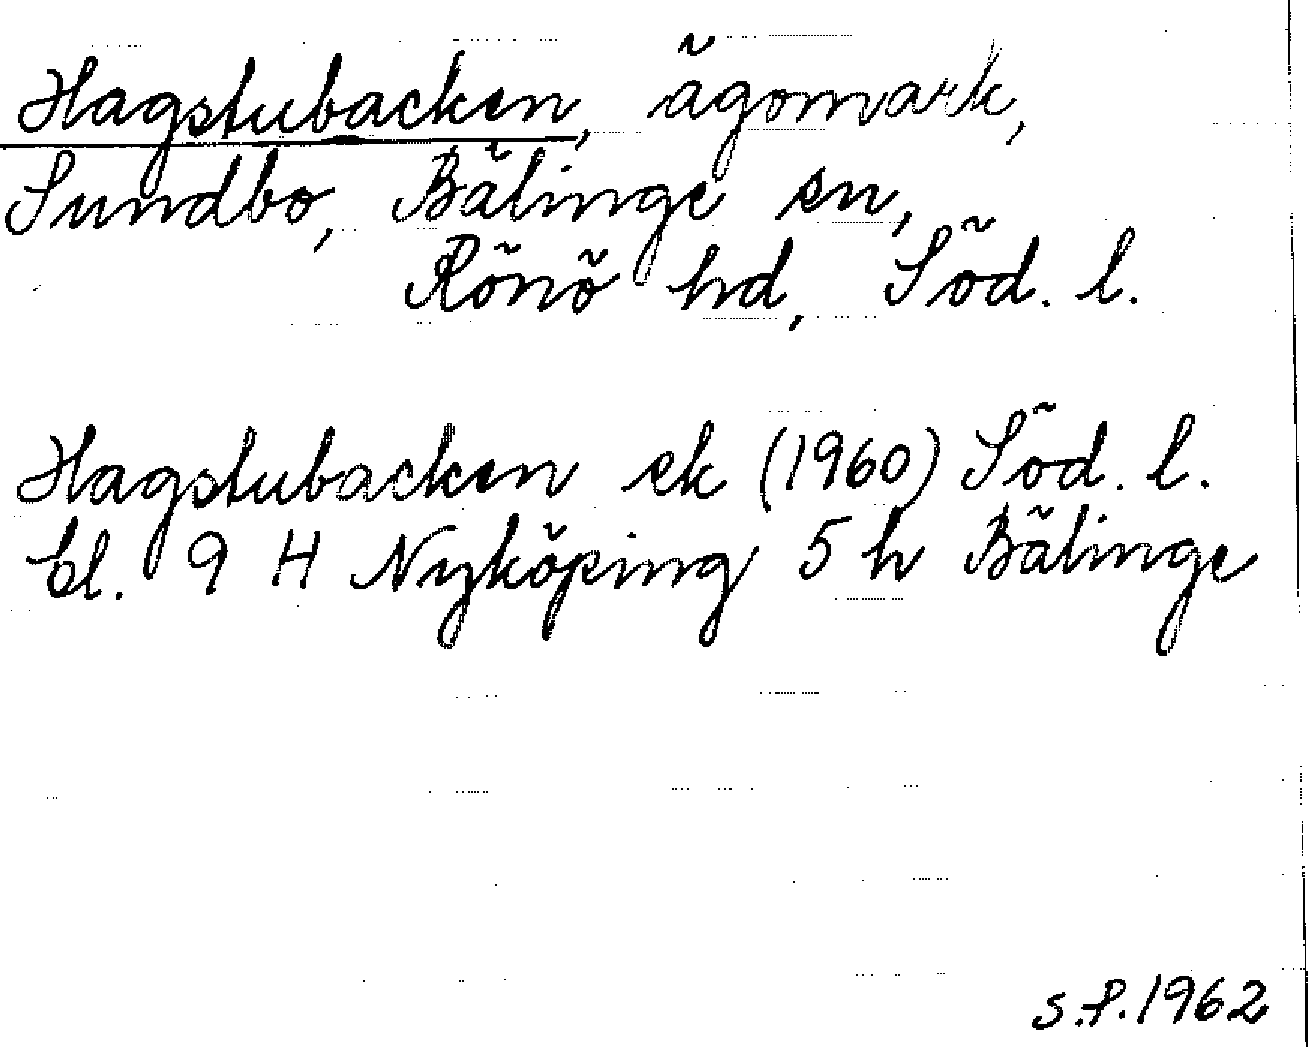 Hagstubacken, ägomark,
Sundbo, Bälinge sn,
Rönö hd, Söd. l.
Hagstubacken ek (1960) Söd. l.
bl. 9 H Nyköping 5 h Bälinge
S.P. 1962